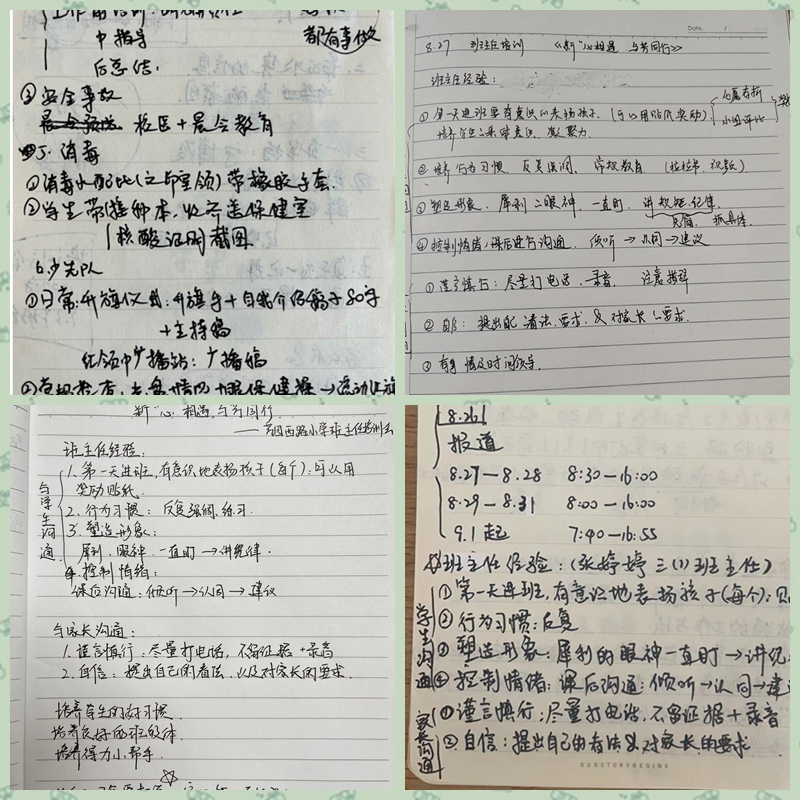 中指导
都有事做
后总结.
③安全事故
校医+晨会教育
5. 消毒
①消毒水配比(之与室领)带橡胶手套.
②学生带接种本,收齐送保健室
核酸证明截图
6.少先队
①日常:升旗仪式:升旗手+自我介绍稿子80字
+主持稿
红领巾广播站:广播稿
Date.
8.27 班主任培训 《新"心相遇 与共同行》
班主任经验:
①第一天进班要有意识的表扬孩子.(可以用贴纸奖励)
②培养行为习惯,反复强调,常规教育
③塑造形象,犀利的眼神一直盯,讲规矩.纪律.
④控制情绪,课后进行沟通,倾听→认同→建议
①谨言慎行:尽量打电话,录音.
②自信:提出自己看法,要求,及对家长的要求.
③有事情及时问领导.
新"心"相遇,与共同行.
班主任经验:
与学生沟通
1. 第一天进班,有意识地表扬孩子(每个):可以用
奖励贴纸.
2. 行为习惯:反复强调,练习.
3. 塑造形象:
犀利,眼神,一直盯→讲规律.
4. 控制情绪:
课后沟通:倾听→认同→建议
与家长沟通:
1. 谨言慎行:尽量打电话,不留证据+录音
2. 自信:提出自己的看法,以及对家长的要求.
培养学生的好习惯.
培养良好的班级体.
培养得力小帮手.
8.26
报道
8.27—8.28 8:30—16:00
8.29—8.31 8:00—16:00
9.1起 7:40—16:55
班主任经验:(张婷婷 三(1)班主任)
学生沟通
①第一天进班,有意识地表扬孩子(每个):
②行为习惯:反复
③塑造形象:犀利的眼神一直盯→讲规
④控制情绪:课后沟通:倾听→认同→建
家长沟通
①谨言慎行:尽量打电话,不留证据+录音
②自信:提出自己的看法&对家长的要求
OURSTORYBEGINS